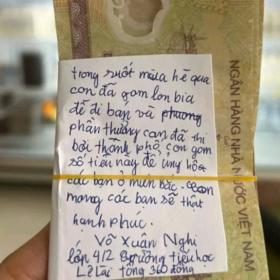 trong suốt mùa hè qua
con đã gom lon bia
để đi bán và phương
phần thưởng con đã thi
bơi thành phố, con gom
số tiền này để ủng hộ
các bạn ở miền bắc. con
mong các bạn sẽ thật
hạnh phúc.
Võ Xuân Nghi
lớp 4/2 trường tiểu học
Lê Lai tổng 360 đồng
NGÂN HÀNG NHÀ NƯỚC VIỆT NAM